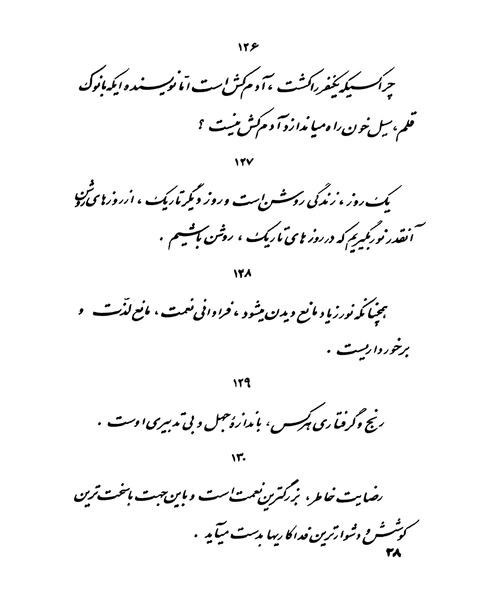 ۱۲۶
چرا کسیکه یکنفر را کشت ، آدم کش است اما نویسنده ایکه با نوک
قلم، سیل خون راه میاندازد آدم کش نیست ؟
۱۲۷
یک روز ، زندگی روشن است و روز دیگر تاریک ، از روزهای روشن
آنقدر نور بگیریم که در روز های تاریک ، روشن باشیم .
۱۲۸
همچنانکه نور زیاد مانع دیدن میشود ، فراوانی نعمت ، مانع لذّت و
برخورداریست .
۱۲۹
رنج و گرفتاری هرکس، باندازهٔ جهل و بی تدبیری اوست .
۱۳۰
رضایت خاطر، بزرگترین نعمت است و باین جهت با سخت ترین
کوشش و دشوارترین فداکاریها بدست میآید .
۳۸